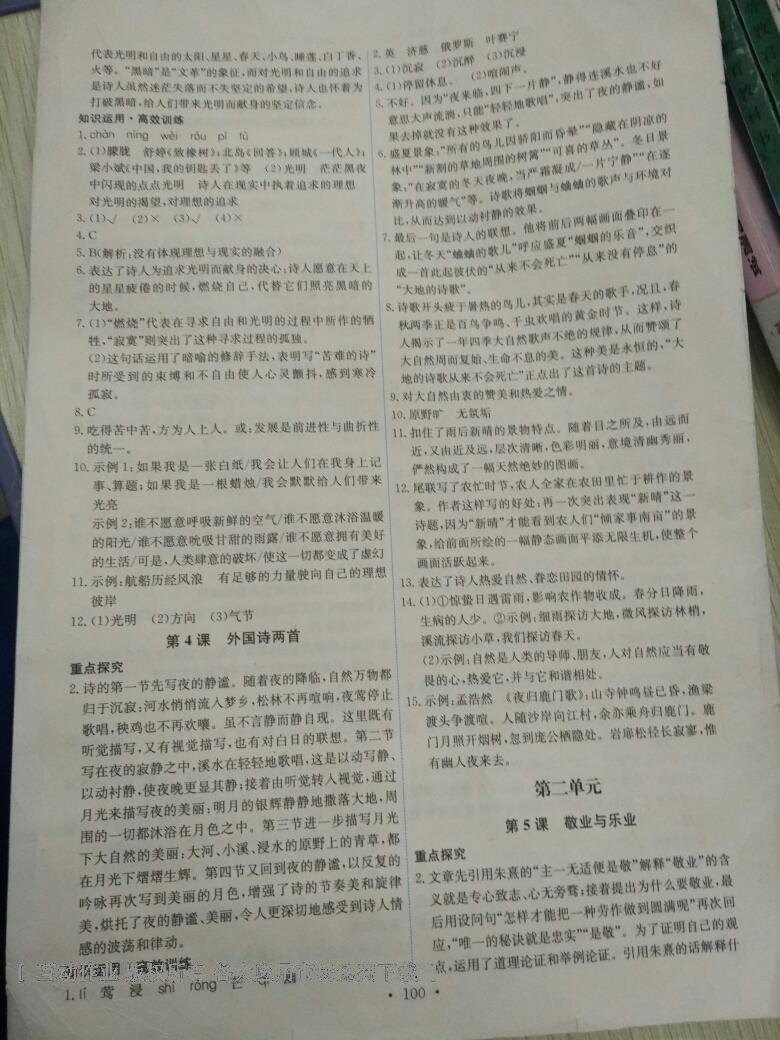 代表光明和自由的太阳、星星、春天、小鸟、睡莲、白丁香、
火等。“黑暗”是“文革”的象征,而对光明和自由的追求
是诗人虽然迷茫失落而不失坚定的希望,诗人也怀着为
打破黑暗,给人们带来光明而献身的坚定信念。
知识运用·高效训练
1. chàn níng wèi róu pì fù
2. (1)朦胧 舒婷《致橡树》;北岛《回答》;顾城《一代人》;
梁小斌《中国,我的钥匙丢了》等 (2)光明 茫茫黑夜
中闪现的点点光明 诗人在现实中执着追求的理想
对光明的渴望,对理想的追求
3. (1)√ (2)× (3)√ (4)×
4. C
5. B(解析:没有体现理想与现实的融合)
6. 表达了诗人为追求光明而献身的决心;诗人愿意在天上
的星星疲倦的时候,燃烧自己,代替它们照亮黑暗的
大地。
7. (1)“燃烧”代表在寻求自由和光明的过程中所作的牺
牲,“寂寞”则突出了这种寻求过程的孤独。
(2)这句话运用了暗喻的修辞手法,表明写“苦难的诗”
时所受到的束缚和不自由使人心灵颤抖,感到寒冷
孤寂。
8. C
9. 吃得苦中苦,方为人上人。或:发展是前进性与曲折性
的统一。
10. 示例1:如果我是一张白纸/我会让人们在我身上记
事、算题;如果我是一根蜡烛/我会默默给人们带来
光亮
示例2:谁不愿意呼吸新鲜的空气/谁不愿意沐浴温暖
的阳光/谁不愿意吮吸甘甜的雨露/谁不愿意拥有美好
的生活/可是,人类肆意的破坏/使这一切都变成了虚幻
11. 示例:航船历经风浪 有足够的力量驶向自己的理想
彼岸
12. (1)光明 (2)方向 (3)气节
第4课 外国诗两首
重点探究
2. 诗的第一节先写夜的静谧。随着夜的降临,自然万物都
归于沉寂:河水悄悄流入梦乡,松林不再喧响,夜莺停止
歌唱,秧鸡也不再欢嚷。虽不言静而静自现。这里既有
听觉描写,又有视觉描写,也有对白日的联想。第二节
写在夜的寂静之中,溪水在轻轻地歌唱,这是以动写静、
以动衬静,使夜晚更显其静;接着由听觉转入视觉,通过
月光来描写夜的美丽:明月的银辉静静地撒落大地,周
围的一切都沐浴在月色之中。第三节进一步描写月光
下大自然的美丽:大河、小溪、浸水的原野上的青草,都
在月光下熠熠生辉。第四节又回到夜的静谧,以反复的
吟咏再次写到美丽的月色,增强了诗的节奏美和旋律
美,烘托了夜的静谧、美丽,令人更深切地感受到诗人情
感的波荡和律动。
知识运用·高效训练
1. lì 莺 浸 shì róng
2. 英 济慈 俄罗斯 叶赛宁
3. (1)沉寂 (2)沉醉 (3)沉浸
4. (1)停留休息。 (2)喧闹声。
5. 不好。因为“夜来临,四下一片静”,静得连溪水也不好
意思大声流淌,只能“轻轻地歌唱”,突出了夜的静谧,如
果去掉就没有这种效果了。
6. 盛夏景象:“所有的鸟儿因骄阳而昏晕”“隐藏在阴凉的
林中”“新割的草地周围的树篱”“可喜的草丛”。冬日景
象:“在寂寞的冬天夜晚,当严霜凝成/一片宁静”“在逐
渐升高的暖气”等。诗歌将蝈蝈与蛐蛐的歌声与环境对
比,从而达到以动衬静的效果。
7. 最后一句是诗人的联想。他将前后两幅画面叠印在一
起,让冬天“蛐蛐的歌儿”呼应盛夏“蝈蝈的乐音”,交织
成一首此起彼伏的“从来不会死亡”“从来没有停息”的
“大地的诗歌”。
8. 诗歌开头疲于暑热的鸟儿,其实是春天的歌手,况且,春
秋两季正是百鸟争鸣、千虫欢唱的黄金时节。这样,诗
人揭示了一年四季大自然歌声不绝的规律,从而赞颂了
大自然周而复始、生命不息的美。这种美是永恒的,“大
地的诗歌从来不会死亡”正点出了这首诗的主题。
9. 对大自然由衷的赞美和热爱之情。
10. 原野旷 无氛垢
11. 扣住了雨后新晴的景物特点。随着目之所及,由远而
近,又由近及远,层次清晰,色彩明丽,意境清幽秀丽,
俨然构成了一幅天然绝妙的图画。
12. 尾联写了农忙时节,农人全家在农田里忙于耕作的景
象。作者这样写的好处:再一次突出表现“新晴”这一
诗题,因为“新晴”才能看到农人们“倾家事南亩”的景
象,给前面所绘的一幅静态画面平添无限生机,使整个
画面活跃起来。
13. 表达了诗人热爱自然、眷恋田园的情怀。
14. (1)①惊蛰日遇雷雨,影响农作物收成。春分日降雨,
生病的人少。②示例:细雨探访大地,微风探访林梢,
溪流探访小草,我们探访春天。
(2)示例:自然是人类的导师、朋友,人对自然应当有敬
畏的心,热爱它,并与它和谐相处。
15. 示例:孟浩然 《夜归鹿门歌》:山寺钟鸣昼已昏,渔梁
渡头争渡喧。人随沙岸向江村,余亦乘舟归鹿门。鹿
门月照开烟树,忽到庞公栖隐处。岩扉松径长寂寥,惟
有幽人夜来去。
第二单元
第5课 敬业与乐业
重点探究
2. 文章先引用朱熹的“主一无适便是敬”解释“敬业”的含
义就是专心致志、心无旁骛;接着提出为什么要敬业,最
后用设问句“怎样才能把一种劳作做到圆满呢”再次回
应,“唯一的秘诀就是忠实”“是敬”。为了证明自己的观
点,运用了道理论证和举例论证。引用朱熹的话解释什
• 100 •